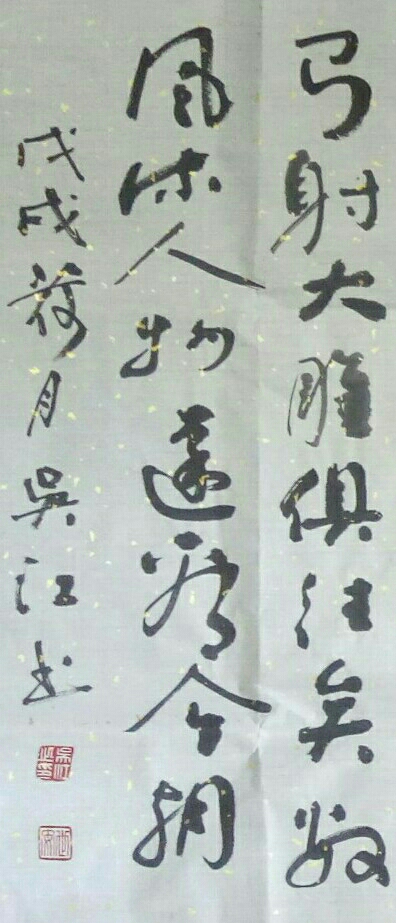 弓射大雕俱往矣数
风流人物還看今朝
戊戌荷月吳江书